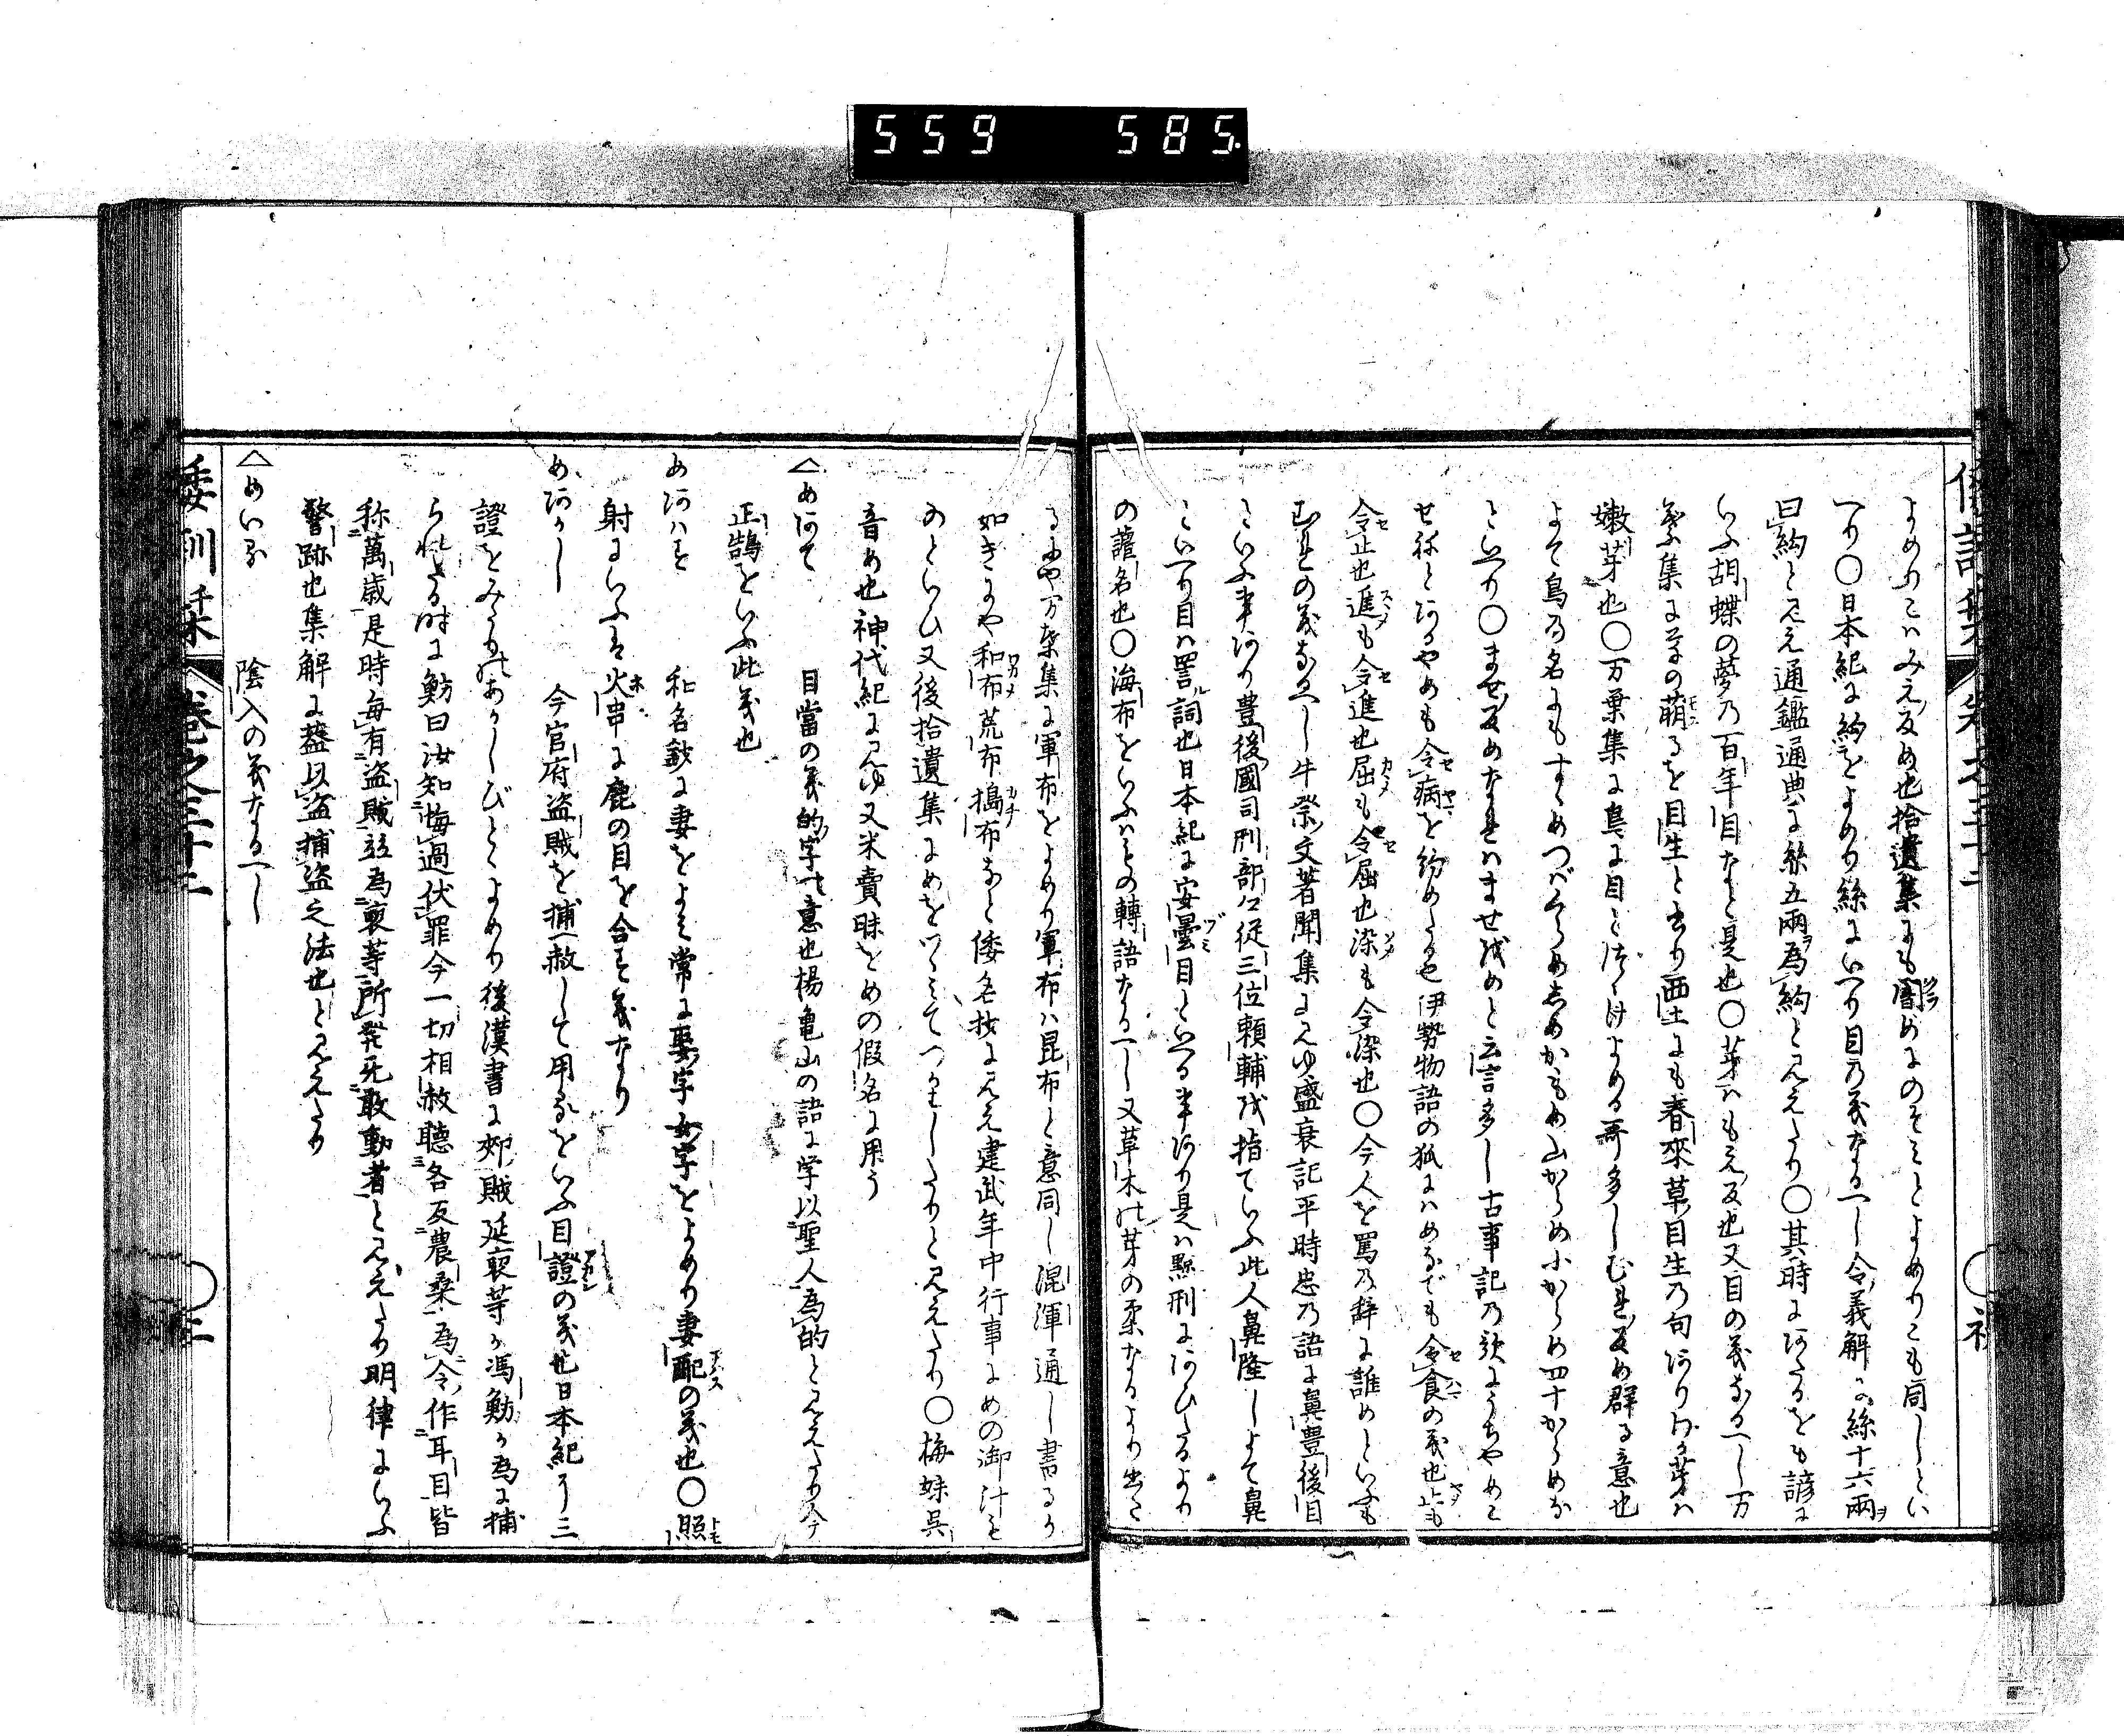 559 585
よめりこハみえ反め也拾遺集にも闇めにのそミとよめりこも同しとい
へり〇日本紀に絇をよめり絲にいへり目乃義なるへし令義解に絲十六兩ヲ
曰絇と見え通鑑通典に絲五兩ヲ為絇と見えたり〇其時にあたるをも諺に
いふ胡蝶の夢乃百年目なと是也〇芽ハもえ反也又目の義なるへし万
葉集に草の萌るを目生と書り西土にも春來草目生乃句あり
嫩芽也〇万葉集に鳥に目とつゝけよめる哥多しむれ反め群る意也
よて鳥乃名にもすゝめつばくらめかもめ山からめ小からめ四十からめな
といへり〇ませ反めなれハませ我めと云言多し古事記乃歌にうちやめこ
せねとあるやめも令病を約めたる也伊勢物語の狐にハめなでも令食の義也止も
令止也進も令進也屈も令屈也染も令染也〇今人を罵乃辞に誰めといふも
むれの義なるへし牛祭文著聞集に見ゆ盛衰記平時忠乃語に鼻豊後目
といふ事あり豊後國司刑部卿従三位頼輔我指ていふ此人鼻隆しよて鼻
といへり目ハ詈詞也日本紀に安曇目といへる事あり是ハ黥刑にあひたるより
の謹名也〇海布をいふハもの轉語なるへし又草木の芽の柔なるより出た
るにや万葉集に軍布をよめり軍布ハ昆布と意同し混渾通し書るか
如きにや和布荒布搗布なと倭名抄に見え建武年中行事にめの御汁を
のといひ又後拾遺集にめをつゝミてつかハしたりと見えたり〇梅妹呉
音め也神代紀に見ゆ又米賣眛をめの假名に用う
めあて 目當の義的字の意也楊亀山の語に学以聖人為的と見えたり今
正鵠をいふ此義也
めあハす 和名鈔に妻をよミ常に娶字女字をよめり妻配の義也〇照
射にいふハ火串に鹿の目を合す義なり
めあかし 今官府盗賊を捕へ赦して用るをいふ目證の義也日本紀に三
證をみたりのあかしびとゝよめり後漢書に郟賊延裒等か馮魴か為に捕
られたる時に魴曰汝知悔過伏罪今一切相赦聴各反農桑為令作耳目皆
称萬歳是時毎有盗賊竝為裒等所発死敢動者と見えたり明律にいふ
警跡也集解に葢以盗捕盗之法也と見えたり
めいる 陰入の義なるへし
倭訓栞 巻之三十二 〇三